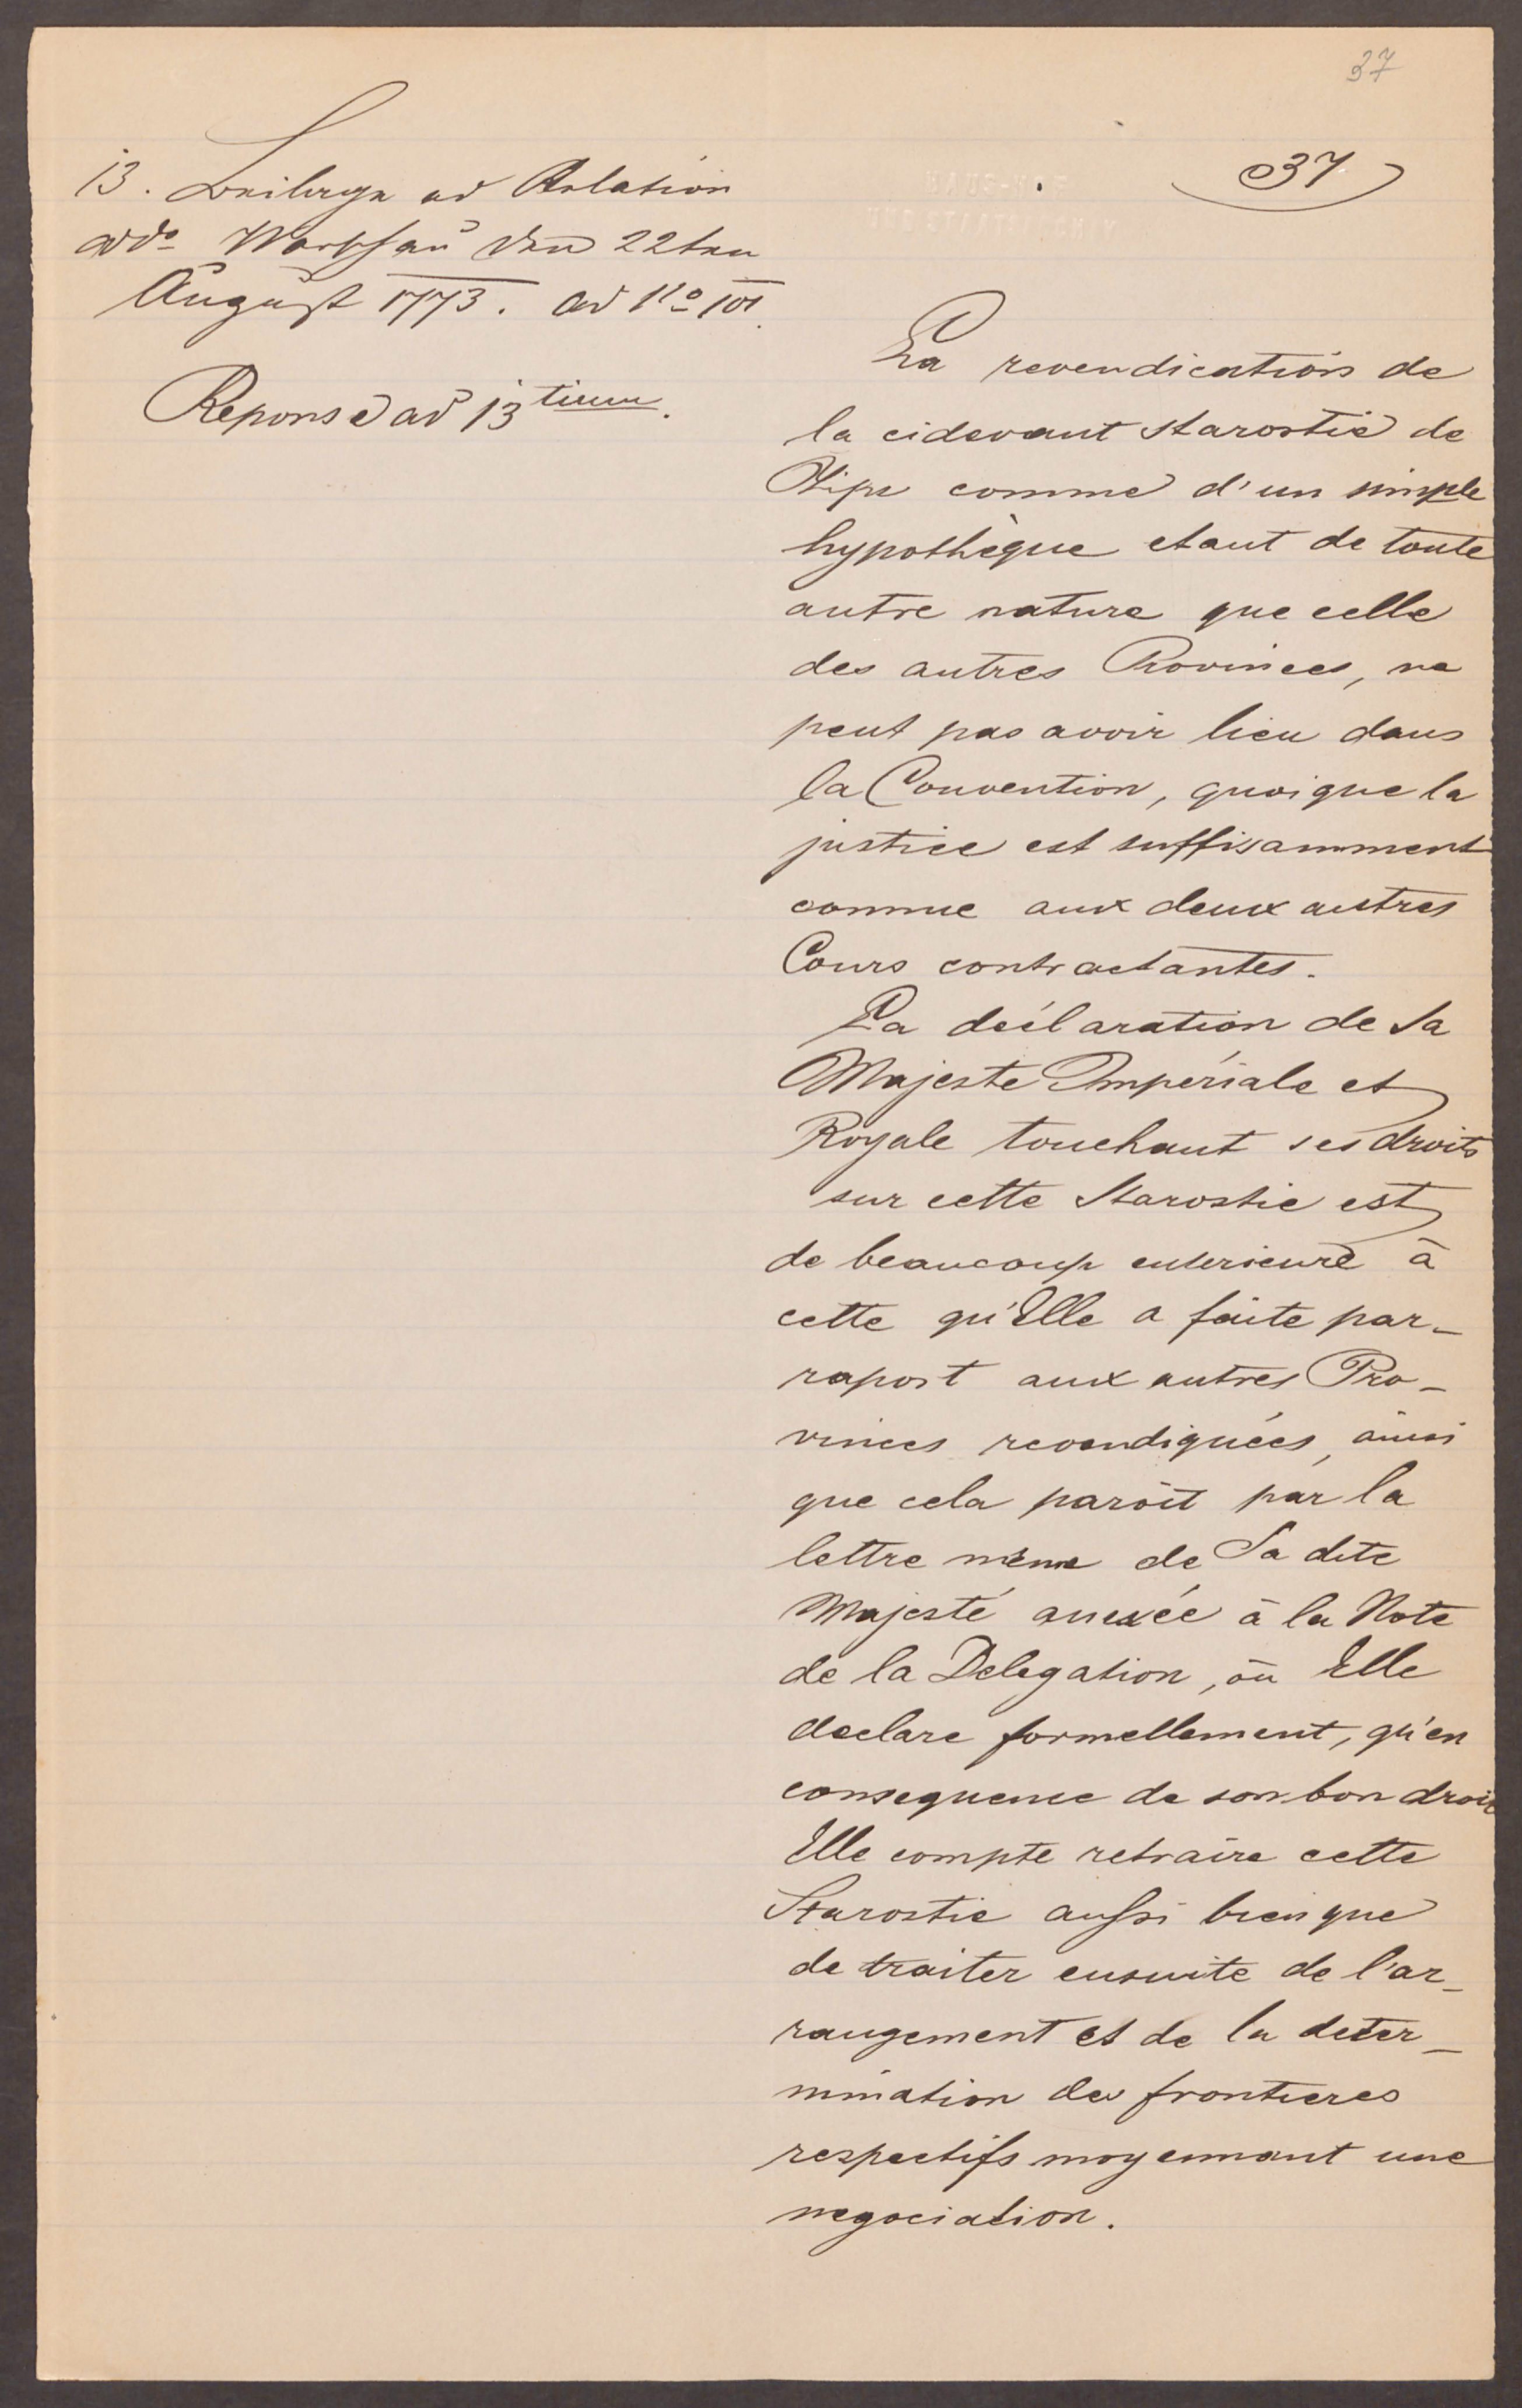 37
37
13. Beilage ad Relation
dd° Warschau den 22ten
August 1773. ad N°
Reponse ad 13tium.
La revendication de
la cidevant Starostie de
Zips comme d'un simple
hypothèque etant de toute
autre nature que celle
des autres Provinces, ne
peut pas avoir lieu dans
la Convention, quoique la
justice est suffisamment
connue aux deux autres
Cours contractantes.
La déclaration de Sa
Majeste Impériale et
Royale touchant ses droits
sur cette Starostie est
de beaucoup anterieure à
cette qu'Elle a faite par-
raport aux autres Pro-
vinces revendiquées, ainsi
que cela paroît par la
lettre même de Sa dite
Majesté annexée à la Note
de la Delegation, où Elle
declare formellement, qu'en
consequence de son bon droit
Elle compte retraire cette
Starostie aussi bien que
de traiter ensuite de l'ar-
rangement et de la deter-
mination des frontieres
respectifs moyennant une
negociation.